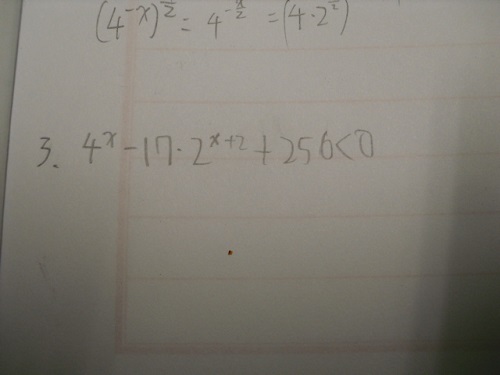 (4^{-x})^{\frac{}{2}} = 4^{-\frac{x}{2}} = (4 \cdot 2^{\frac{}{2}})
3. 4^x - 17 · 2^{x+2} + 256 < 0